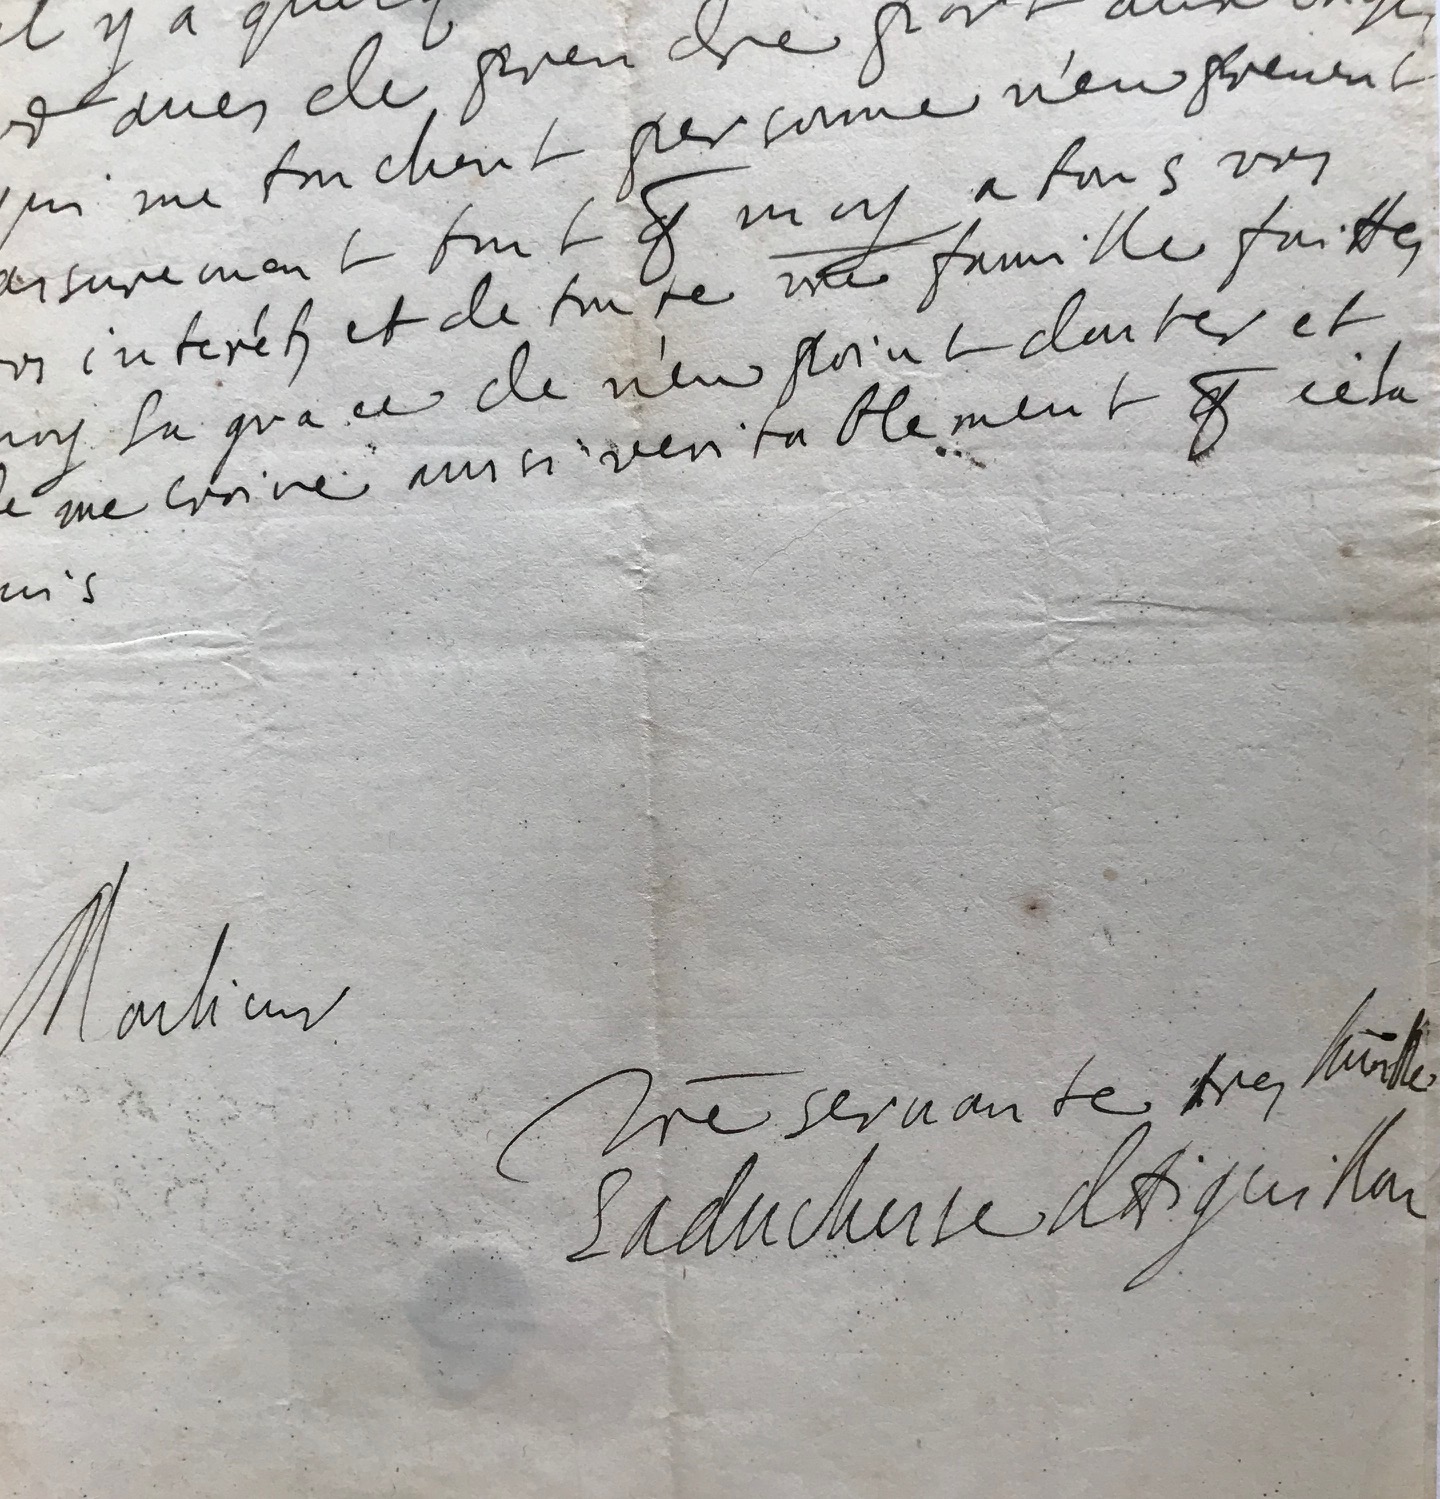 il y a quelq
de prendre part aux
qui me touchent personne n'en prenent
assurement tant q̄ moy a tous vos
interéts et de toute vr̄e famille faittes
moy la grace de n'en point douter et
de me croire aussi veritablement q̄ cela
suis
Monsieur
Vr̄e servante tres humble
La duchesse d'Aiguillon